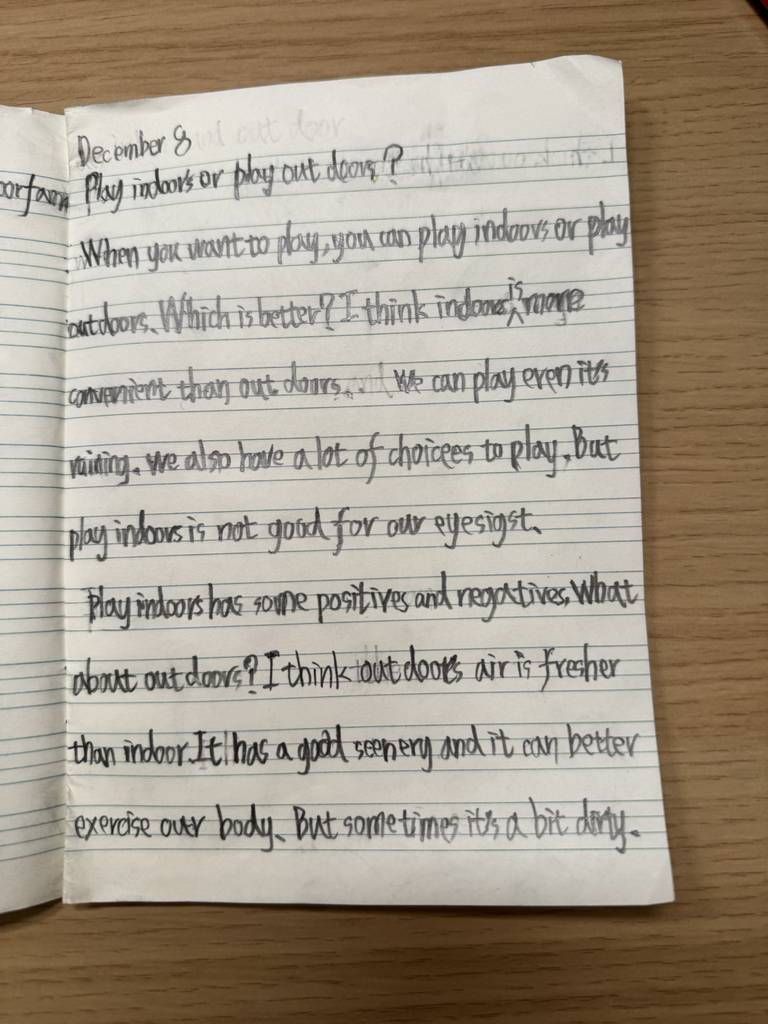 December 8
Play indoors or play out doors?
When you want to play, you can play indoors or play
outdoors. Which is better? I think indoors is more
convenient than out doors. We can play even it's
raining. We also have a lot of choicees to play. But
play indoors is not good for our eyesigst.
Play indoors has some positives and negatives. What
about out doors? I think out doors air is fresher
than indoor. It has a good seenery and it can better
exercise our body. But sometimes it's a bit dirty.